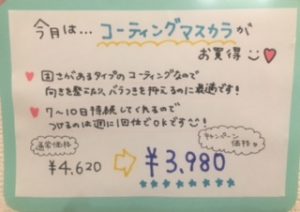 今月は… コーティングマスカラが
お買得
固さがあるタイプの コーティングなので
向きを整えたり、バラつきを抑えるのに最適です!
7～10日持続してくれるので
つけるのは週に1回位でOKです!
通常価格
¥4,620
キャンペーン価格
¥3,980